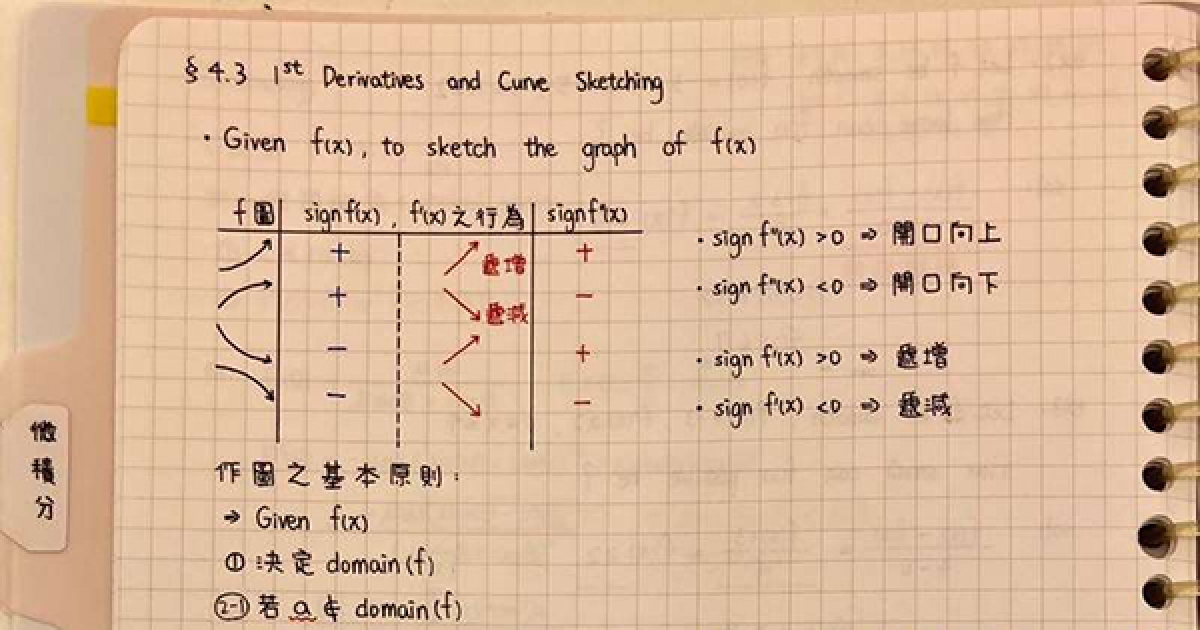 §4.3 1st Derivatives and Curve Sketching
• Given f(x), to sketch the graph of f(x)
f圖 sign f(x), f'(x)之行為 sign f"(x)
+ 遞增 +
+ 遞減 −
− +
− −
• sign f"(x) >0 ⇒ 開口向上
• sign f"(x) <0 ⇒ 開口向下
• sign f'(x) >0 ⇒ 遞增
• sign f'(x) <0 ⇒ 遞減
微積分
作圖之基本原則:
→ Given f(x)
① 決定 domain(f)
(2-1) 若 a ∉ domain(f)